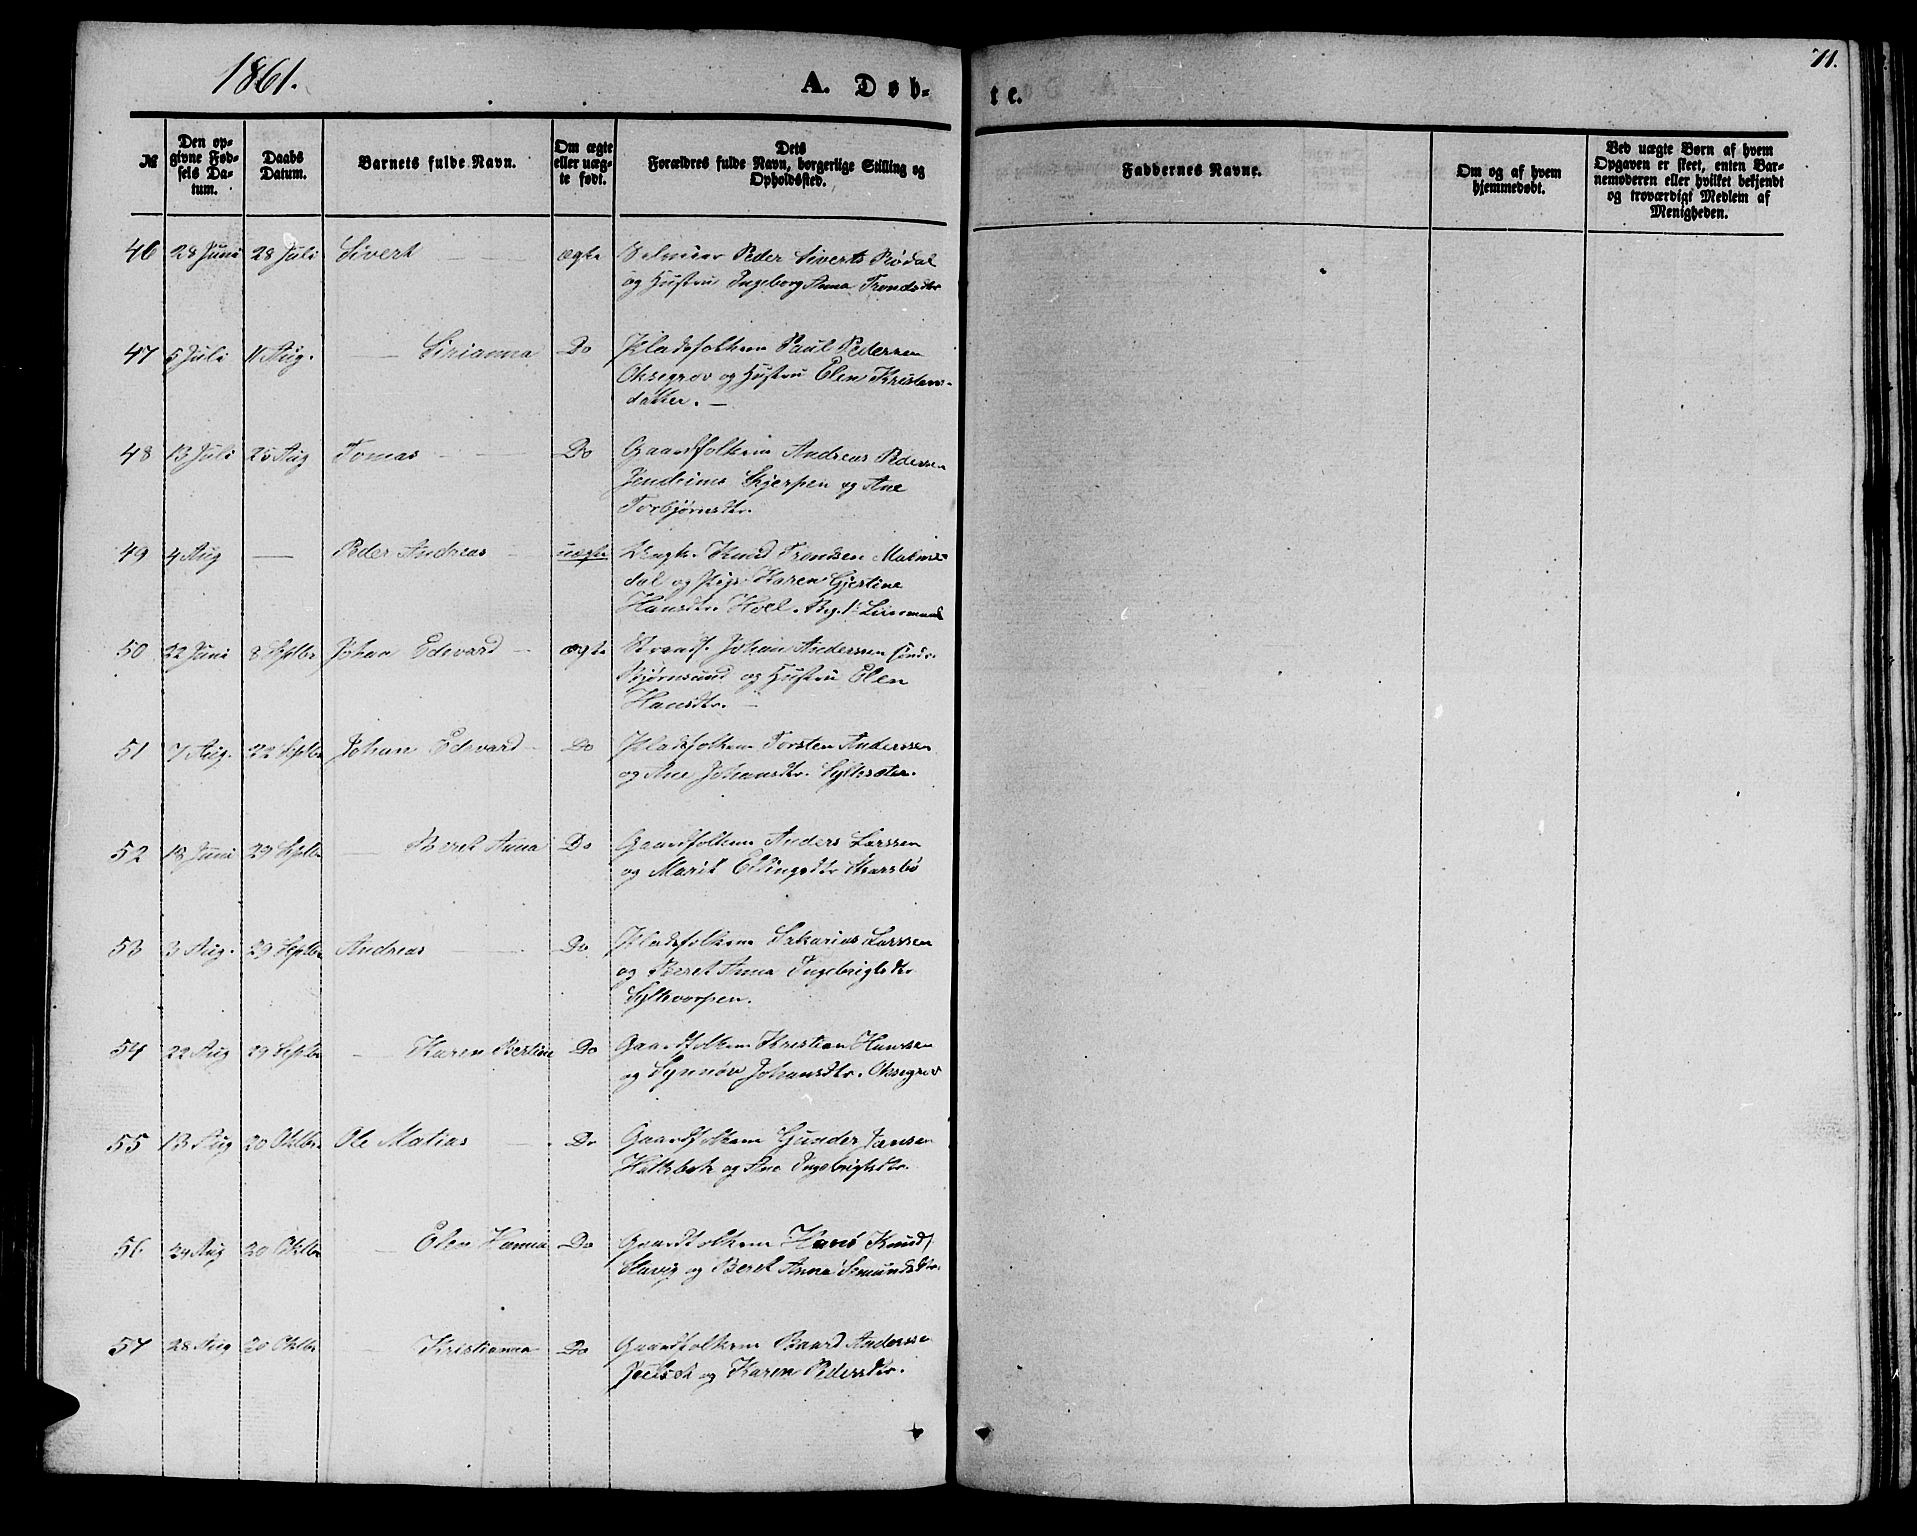 1861.
A. Døb-
te.
71.
№
Den op-
givne Fød-
sels Da-
tum.
Daabs
Datum.
Barnets fulde Navn.
Om ægte
eller uæg-
te født.
Dets
Forældres fulde Navn, borgerlige Stilling og
Opholdssted.
Faddernes Navne.
Om og af hvem
hjemmedøbt.
Ved uægte Børn af hvem
Opgaven er skeet, enten Bar-
nemoderen eller hvilket bekjendt
og troværdigt Medlem af
Menigheden.
46 28 Juni 28 Juli Sivert ægte Peder Siverts Rødal
og Hustru Ingeborg Anna Trondsdtr
47 5 Juli 11 Aug. Sirianna Do Pladsfolkene Paul Pedersen
Oksegrov og Hustru Elen Kristens-
datter. —
48 13 Juli 25 Aug Tomas Do Gaardfolkene Andreas Pedersen
Jendeims Skjerpen og Ane
Torbjørnsdtr.
49 4 Aug — Peder Andreas uægte Ungk. Knud Trondsen Malme-
dal og Pige Karen Gjertine
Hansdtr. Hoel.
50 22 Juni 8 Septbr Johan Edevard ægte Strands. Johan Anderssen søndr.
Bjørnsund og Hustru Elen
Hansdtr. —
51 7 Aug. 22 Septbr Johan Edevard Do Pladsfolkene Torsten Anderssen
og Ane Johansdtr. Sylteseter.
52 18 Juni 29 Septbr Beret Anna Do Gaardfolkene Anders Larssen
og Marit Ellingsdtr Skarsbø
53 3 Aug. 29 Septbr Andreas Do Pladsfolkene Sakarias Larssen
og Beret Anna Ingebrigtsdtr
Syltevorpen.
54 22 Aug 29 Septbr Karen Bertine Do Gaardfolkene Kristian Hanssen
og Synnøv Johansdtr. Oksegrov
55 13 Aug 20 Oktbr. Ole Matias Do Gaardfolkene Gunder Jansen
Hatlebak og Ane Ingebrigtsdtr.
56 24 Aug 20 Oktbr Elen Hanna Do Gaardfolkene Hans Knuds.
Stavig og Beret Anna Simundsdtr.
57 28 Aug 20 Oktbr Kristianna Do Gaardfolkene Baard Anderssen
og Karen Pedersdtr.